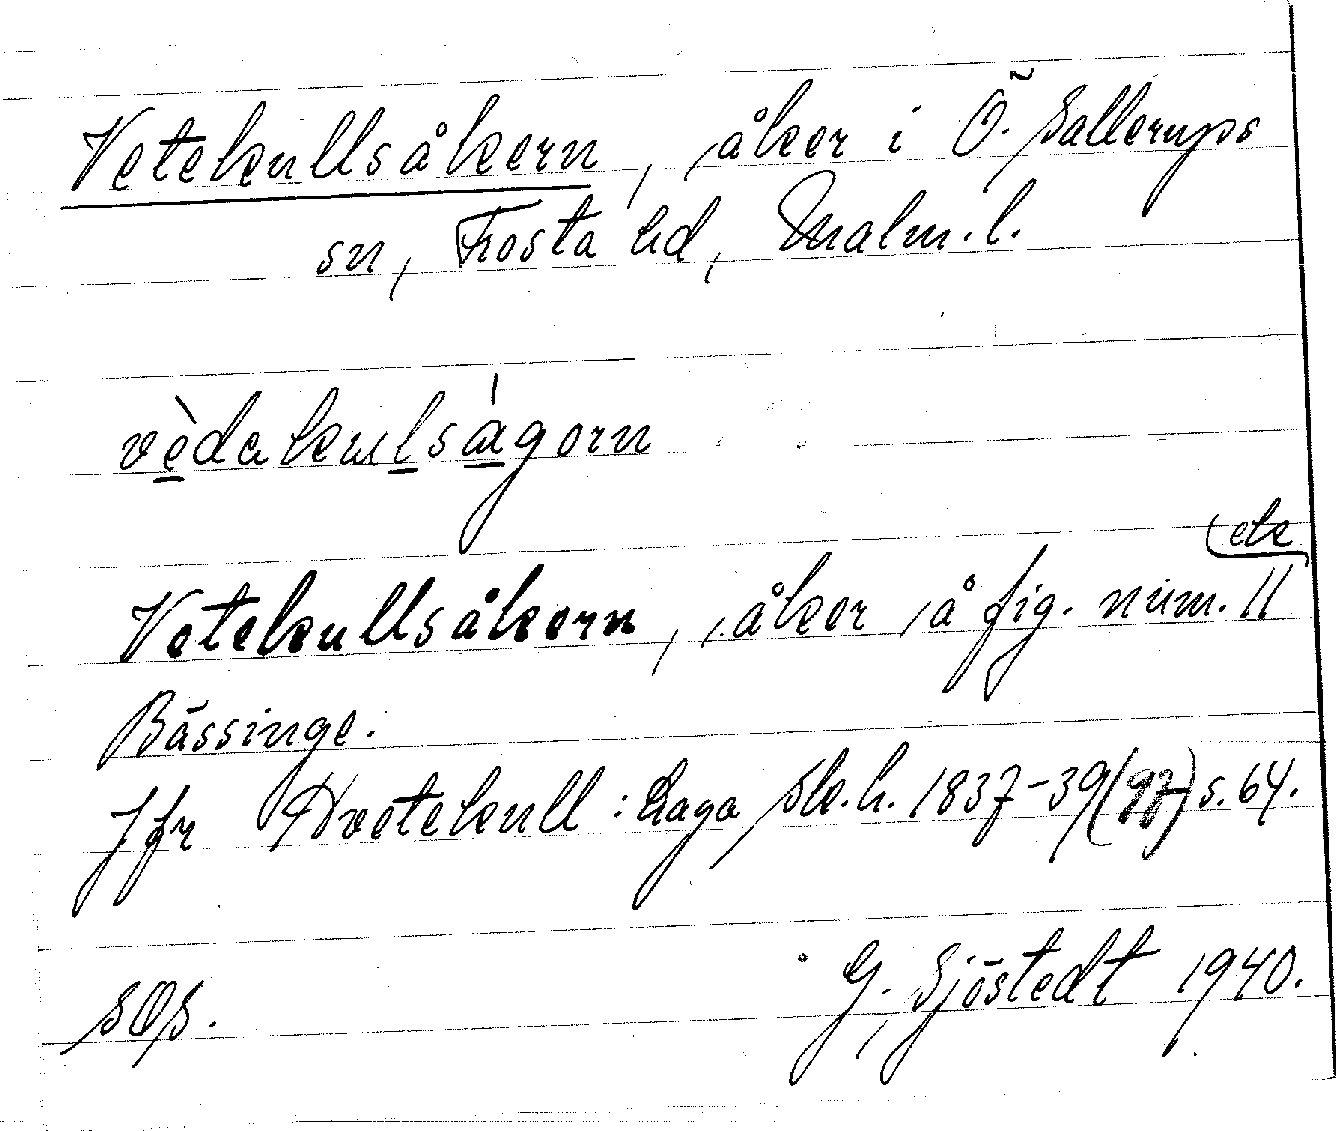 Vetekullsåkern, åker i Ö. Sallerups
sn, Frosta hd, Malm. l.
vèdakulsàgorn
etc
Vetekullsåkern, åker å fig. num. 11
Bässinge.
Jfr Hvetekull: Laga sk.h. 1837-39 (97) s. 64.
SOS.
G. Sjöstedt 1940.